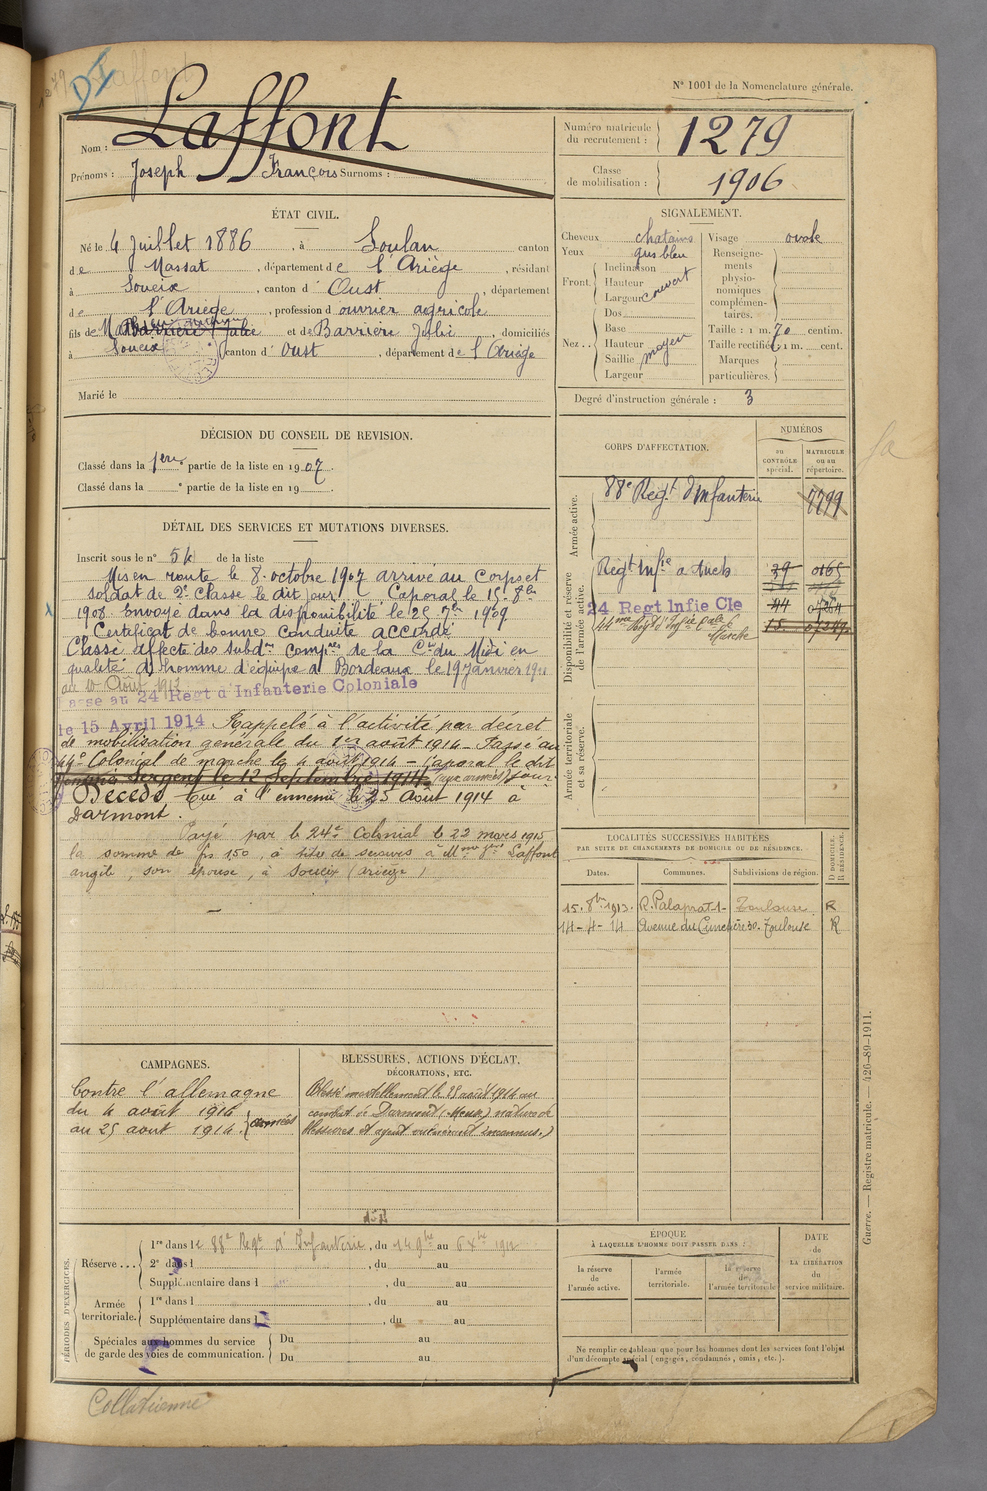 DI
N° 1001 de la Nomenclature générale.
Nom : Laffont
Prénoms : Joseph François Surnoms :
Numéro matricule du recrutement : 1279
Classe de mobilisation : 1906
ÉTAT CIVIL.
Né le 4 Juillet 1886, à Soulan canton
de Massat, département de l'Ariège, résidant
à Soueix, canton d'Oust, département
de l'Ariège, profession d'ouvrier agricole
fils de et de Barrière Julie, domiciliés
à Soueix canton d'Oust, département de l'Ariège
Marié le
SIGNALEMENT.
Cheveux chatains
Yeux gris bleu
Front. Inclinaison
Hauteur
Largeur couvert
Nez .. Dos
Base
Hauteur
Saillie moyen
Largeur
Visage ovale
Renseignements physionomiques complémentaires.
Taille : 1 m. 70 centim.
Taille rectifiée : 1 m. cent.
Marques particulières.
Degré d'instruction générale : 3
DÉCISION DU CONSEIL DE REVISION.
Classé dans la 1ere partie de la liste en 1907.
Classé dans la ° partie de la liste en 19 .
CORPS D'AFFECTATION.
NUMÉROS
au CONTRÔLE spécial.
MATRICULE ou au répertoire.
Armée active.
88e Regt d'Infanterie 7799
Disponibilité et réserve de l'armée active.
Regt Infie a Auch 39 0165
24 Regt Infie Cle 44
44me Regt d'Infie Cale de Marche 15
Armée territoriale et sa réserve.
DÉTAIL DES SERVICES ET MUTATIONS DIVERSES.
Inscrit sous le n° 54 de la liste
Mis en route le 8 octobre 1907 arrivé au Corps et
soldat de 2e Classe le dit jour. Caporal le 15 8bre
1908. Envoyé dans la disponibilité le 25 7bre 1909
Certificat de bonne conduite accordé
Classé affecté des subdons Compres de la Cie du Midi en
qualité d'homme d'équipe a Bordeaux le 19 janvier 1911
au 10 Août 1912
Passé au 24 Regt d'Infanterie Coloniale
le 15 Avril 1914 Rappelé à l'activité par décret
de mobilisation générale du 1er août 1914 - Passé au
44e Colonial de marche le 4 août 1914 - Caporal le dit
Sergent le 12 Septembre 1914. (aux armées) jour.
Décédé, tué à l'ennemi le 25 Août 1914 à
Darmont.
Payé par le 24e Colonial le 22 mars 1915
la somme de frs 150, à titre de secours à Mme Laffont
angèle, son épouse, à Soueix (ariège)
LOCALITÉS SUCCESSIVES HABITÉES
PAR SUITE DE CHANGEMENTS DE DOMICILE OU DE RÉSIDENCE.
Dates. Communes. Subdivisions de région. D domicile. R résidence.
15. 8bre 1913. R. Palaprat 1- Toulouse. R
14-4-14 Avenue du Cimetière 30. Toulouse R
CAMPAGNES.
Contre l'allemagne
du 4 août 1914
au 25 août 1914. (armées
BLESSURES, ACTIONS D'ÉCLAT,
DÉCORATIONS, ETC.
Blessé mortellement le 25 août 1914 au
combat de Darmont (Meuse) nature de
blessures et agent vulnérant inconnus.)
PÉRIODES D'EXERCICES.
Réserve ... 1re dans le 88e Regt d'Infanterie, du au
2e dans l , du au
Supplémentaire dans l , du au
Armée territoriale. 1re dans l , du au
Supplémentaire dans l , du au
Spéciales aux hommes du service de garde des voies de communication. Du au
Du au
ÉPOQUE
À LAQUELLE L'HOMME DOIT PASSER DANS :
la réserve de l'armée active.
l'armée territoriale.
la réserve de l'armée territoriale
DATE de LA LIBÉRATION du service militaire.
Ne remplir ce tableau que pour les hommes dont les services font l'objet
d'un décompte spécial (engagés, condamnés, omis, etc.).
Guerre. — Registre matricule. — 426-89-1911.
Collationné